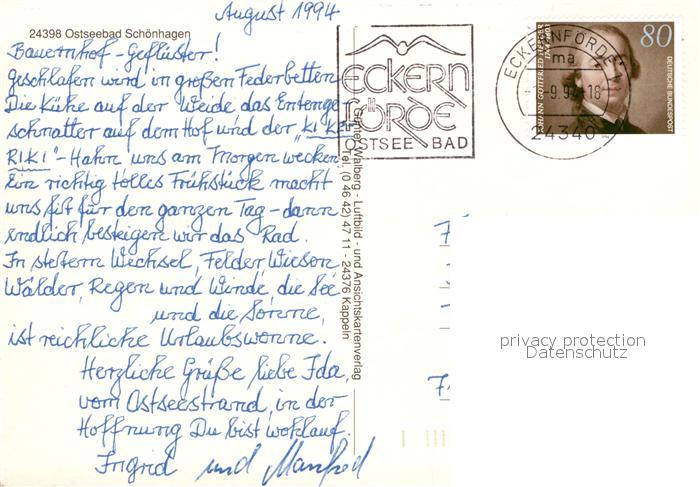 August 1994
24398 Ostseebad Schönhagen
Bauernhof-Geflüster!
Geschlafen wird in großen Federbetten
Die Kühe auf der Weide das Entenge
schnatter auf dem Hof wird der "KI KE
RIKI"-Hahn uns am Morgen wecken.
Ein richtig tolles Frühstück macht
uns fit für den ganzen Tag - dann
endlich besteigen wir das Rad.
In stetem Wechsel, Felder, Wiesen
Wälder, Regen und Winde, die See
und die Sonne,
ist reichliche Urlaubswonne.
Herzliche Grüße liebe Ida,
vom Ostseestrand, in der
Hoffnung Du bist wohlauf.
Ingrid und Manfred
Walberg - Luftbild - und Ansichtskartenverlag
Tel. (0 46 42) 47 11 - 24376 Kappeln
ECKERN
FÖRDE
OSTSEE BAD
ECKERNFÖRDE
ma
-9.9
-18
24340
80
DEUTSCHE BUNDESPOST
JOHANN GOTTFRIED HERDER
privacy protection
Datenschutz